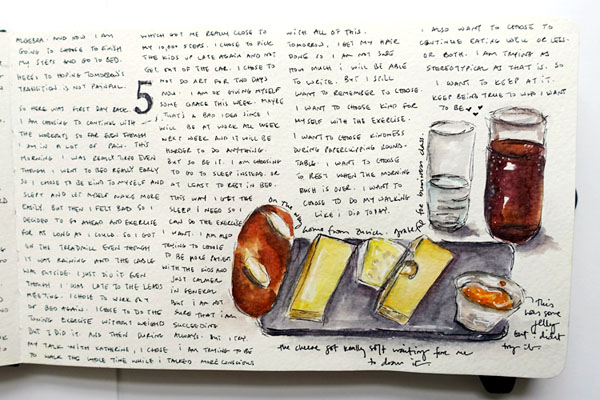 ALGEBRA. AND NOW I AM
GOING TO CHOOSE TO FINISH
MY STEPS AND GO TO BED.
HERE'S TO HOPING TOMORROW'S
TRANSITION IS NOT PAINFUL.
SO HERE WAS FIRST DAY BACK.
I AM CHOOSING TO CONTINUE WITH
THE WORKOUTS SO FAR EVEN THOUGH
I AM IN A LOT OF PAIN. THIS
MORNING I WAS REALLY TIRED EVEN
THOUGH I WENT TO BED REALLY EARLY
SO I CHOSE TO BE KIND TO MYSELF AND
SLEPT AND LET MYSELF WAKE MORE
EASILY. BUT THEN I FELT BAD SO I
DECIDED TO GO AHEAD AND EXERCISE
FOR AS LONG AS I COULD. SO I GOT
ON THE TREADMILL EVEN THOUGH
IT WAS RAINING AND THE CABLE
WAS OUTSIDE. I JUST DID IT EVEN
THOUGH I WAS LATE TO THE LEADS
MEETING. I CHOSE TO WORK OUT
OF BED AGAIN. I CHOSE TO DO THE
TONING EXERCISE WITHOUT WEIGHTS
BUT I DID IT. AND THEN DURING
MY TALK WITH KATHERINE, I CHOSE
TO WALK THE WHOLE TIME WHILE I TALKED MORE CONSCIOUS
5
WHICH GOT ME REALLY CLOSE TO
MY 10,000 STEPS. I CHOSE TO PICK
THE KIDS UP LATE AGAIN AND NOT
GET OUT OF THE CAR. I CHOSE TO
NOT DO ART FOR TWO DAYS
NOW. I AM GIVING MYSELF
SOME GRACE THIS WEEK. MAYBE
THAT'S A BAD IDEA SINCE I
WILL BE AT WORK ALL WEEK
NEXT WEEK AND IT WILL BE
HARDER TO DO ANYTHING.
BUT SO BE IT. I AM CHOOSING
TO GO TO SLEEP INSTEAD. OR
AT LEAST TO REST IN BED.
THIS WAY I GET THE
SLEEP I NEED SO I
CAN DO THE EXERCISE
I WANT. I AM ALSO
TRYING TO CHOOSE
TO BE MORE PATIENT
WITH THE KIDS AND
JUST CALMER
IN GENERAL
BUT I AM NOT
SURE THAT I AM
SUCCEEDING
ALWAYS. BUT I TRY.
I AM TRYING TO BE
WITH ALL OF THIS.
TOMORROW, I GET MY HAIR
DONE SO I AM NOT SURE
HOW MUCH I WILL BE ABLE
TO WRITE. BUT I STILL
WANT TO REMEMBER TO CHOOSE.
I WANT TO CHOOSE KIND FOR
MYSELF WITH THE EXERCISE.
I WANT TO CHOOSE KINDNESS
DURING PAPERCLIPPING ROUND-
TABLE. I WANT TO CHOOSE
TO REST WHEN THE MORNING
RUSH IS OVER. I WANT TO
CHOOSE TO DO MY WALKING
LIKE I DID TODAY.
I ALSO WANT TO CHOOSE TO
CONTINUE EATING WELL OR LESS.
OR BOTH. I AM TRYING AS
STEREOTYPICAL AS THAT IS. SO
I WANT TO KEEP AT IT.
KEEP BEING TRUE TO WHO I WANT
TO BE
on the way
home from Zurich.
for business class.
the cheese got really soft waiting for me
to draw it.
This
was some
jelly
but I didn't
try it.